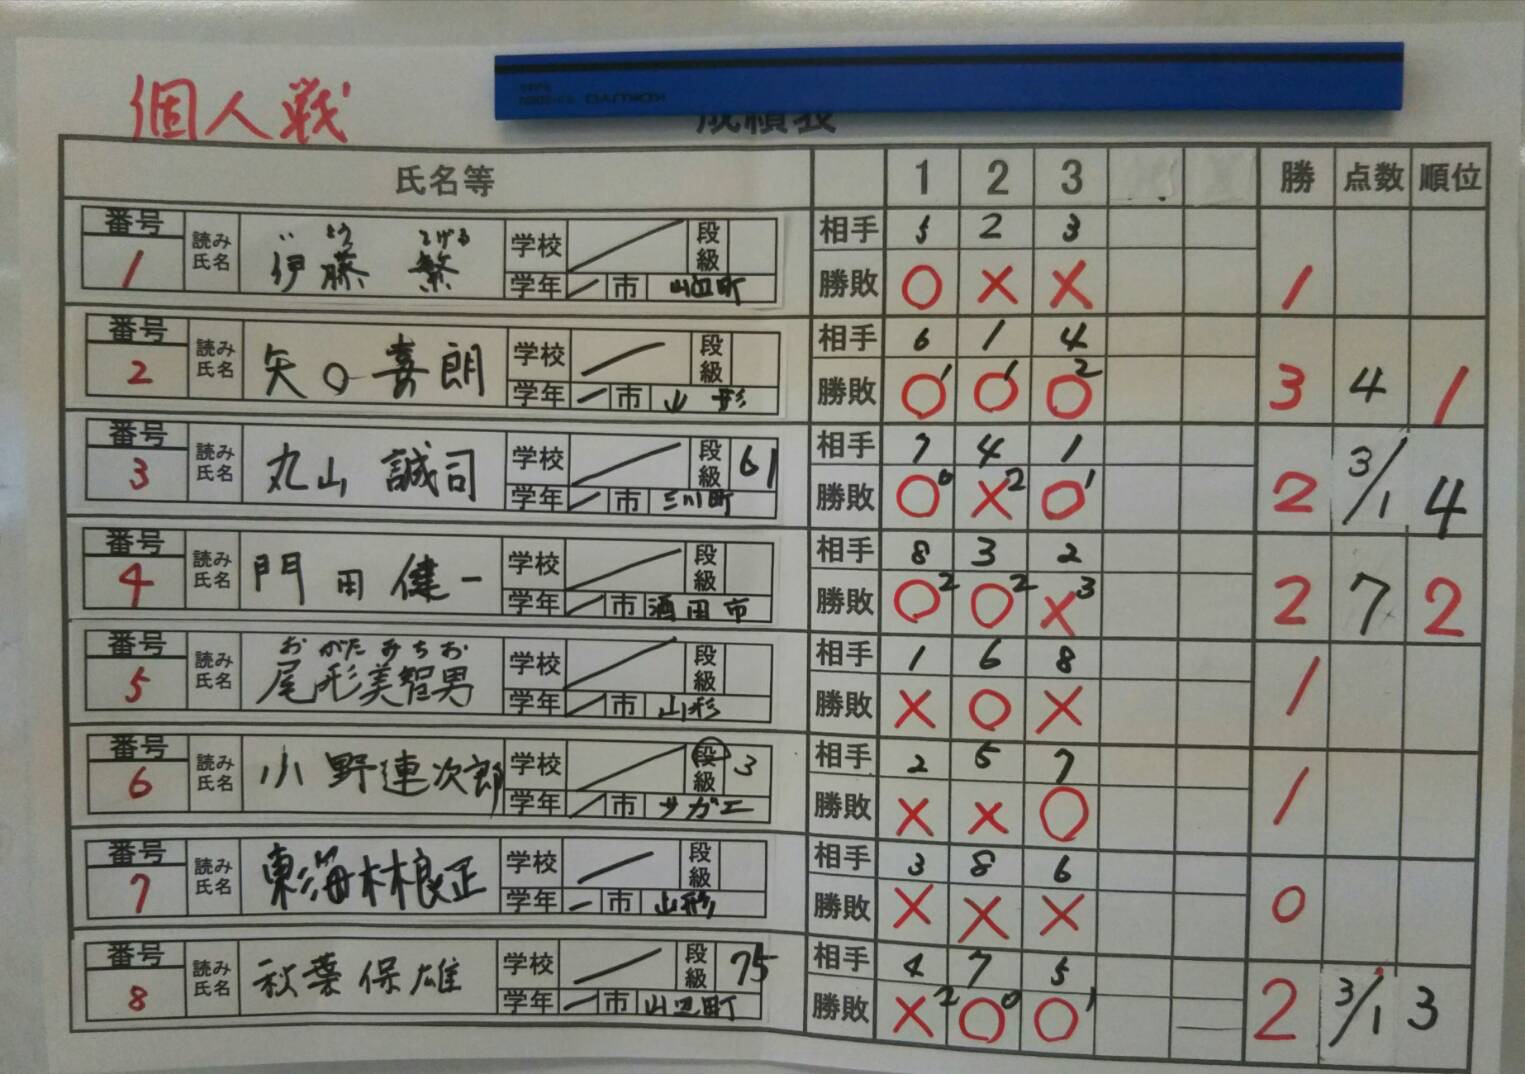 個人戦
成績表
氏名等 1 2 3 勝 点数 順位
番号 1 読み氏名 伊藤 繁 しげる 学校 段級 学年 市 山辺町 相手 5 2 3
勝敗 ○ × × 1
番号 2 読み氏名 矢口喜朗 学校 段級 学年 市 山形 相手 6 1 4
勝敗 ○1 ○1 ○2 3 4 1
番号 3 読み氏名 丸山 誠司 学校 段級 61 学年 市 三川町 相手 7 4 1
勝敗 ○0 ×2 ○1 2 3/1 4
番号 4 読み氏名 門田健一 学校 段級 学年 市 酒田市 相手 8 3 2
勝敗 ○2 ○2 ×3 2 7 2
番号 5 読み氏名 おがたみちお 尾形美智男 学校 段級 学年 市 山形 相手 1 6 8
勝敗 × ○ × 1
番号 6 読み氏名 小野連次郎 学校 段級 3 学年 市 サガエ 相手 2 5 7
勝敗 × × ○ 1
番号 7 読み氏名 東海林良正 学校 段級 学年 市 山形 相手 3 8 6
勝敗 × × × 0
番号 8 読み氏名 秋葉保雄 学校 段級 75 学年 市 山辺町 相手 4 7 5
勝敗 ×2 ○0 ○1 2 3/1 3